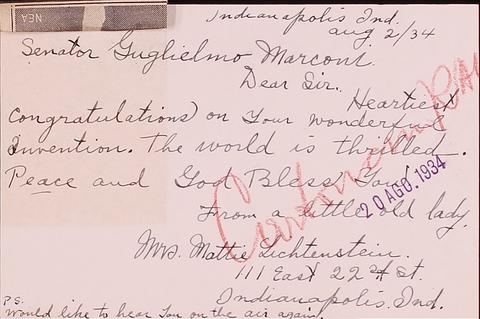 NEA
Indianapolis Ind.
Aug 2/34
Senator Guglielmo Marconi.
Dear Sir.
Heartiest
Congratulations on Your wonderful
Invention. The world is thrilled.
Peace and God Bless You.
20 AGO. 1934
From a little old lady,
Mrs. Mattie Lichtenstein.
111 East 22nd St.
Indianapolis. Ind.
P.S.
would like to hear You on the air again.